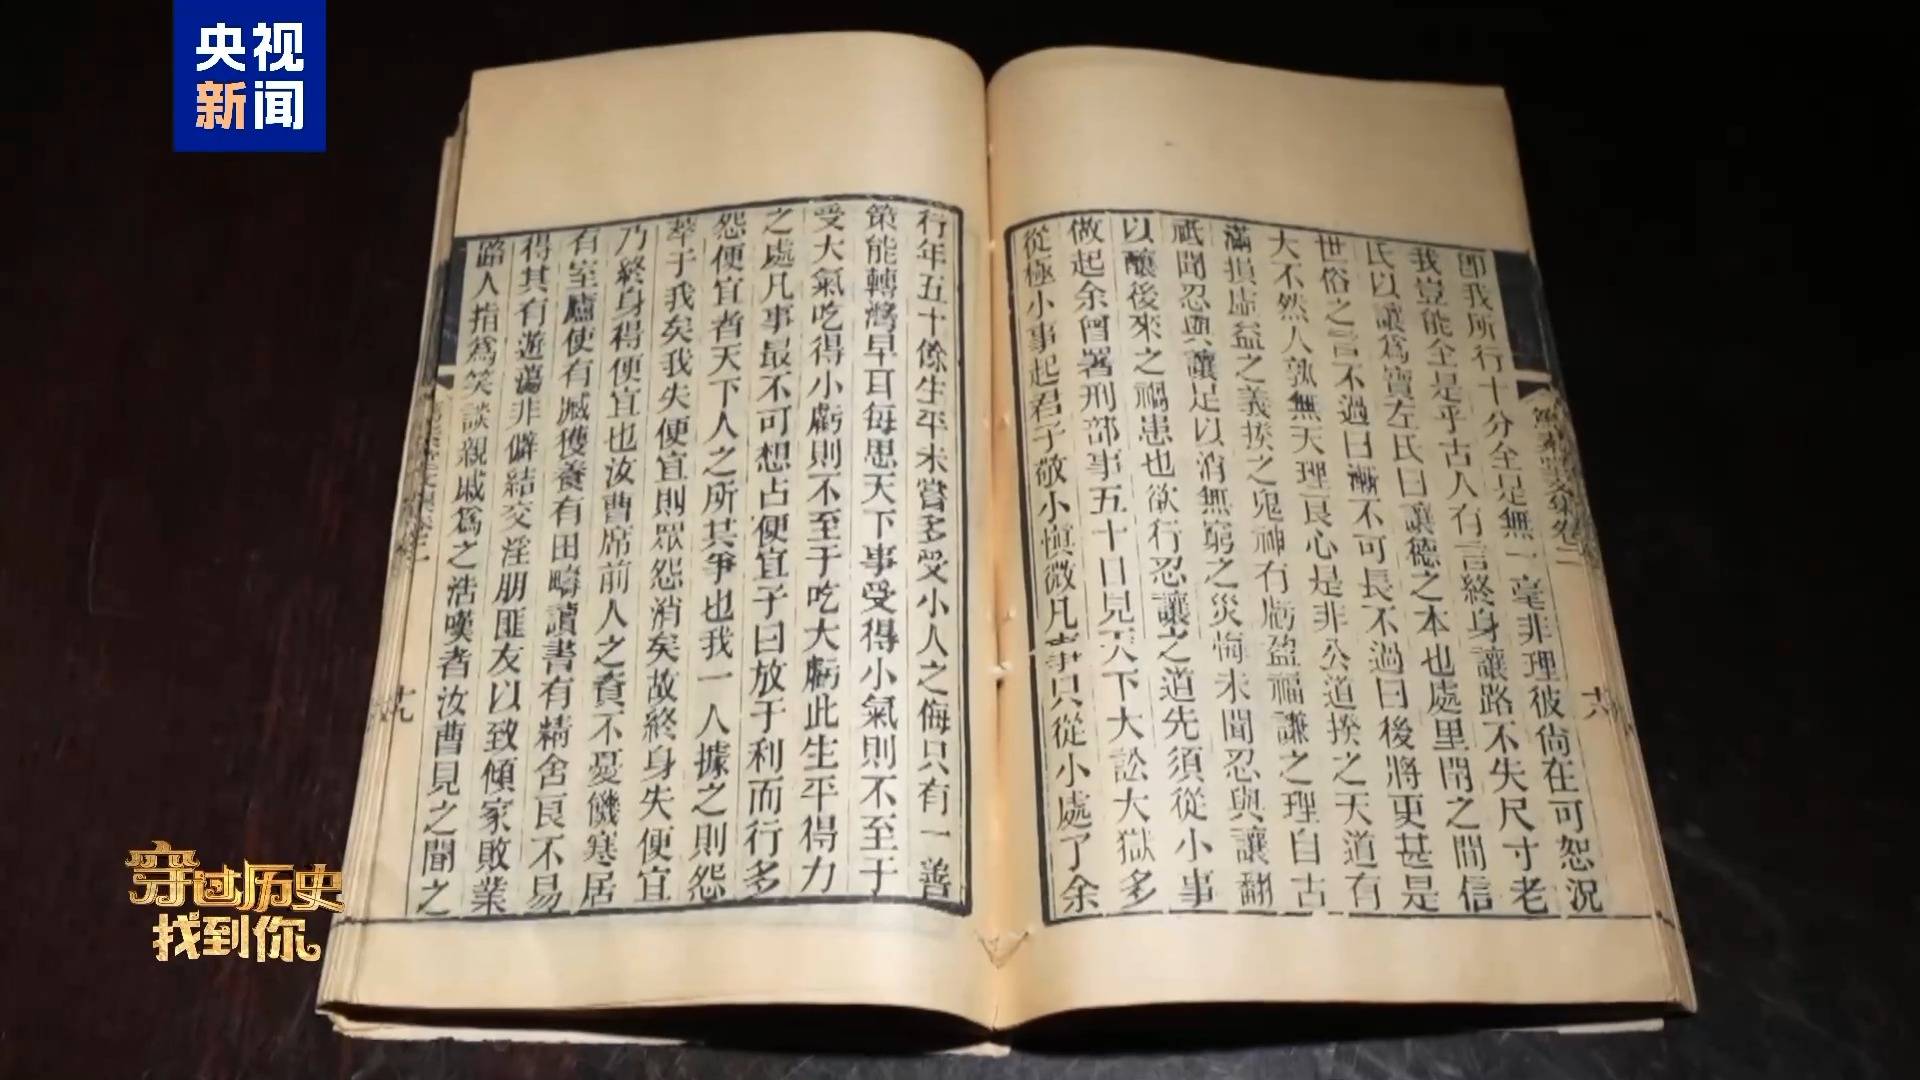 央视
新闻
卽我所行十分全是無一毫非理彼尙在可恕況
我豈能全是乎古人有言終身讓路不失尺寸老
氏以讓爲寶左氏曰讓德之本也處里閈之間信
世俗之言不過曰漸不可長不過曰後將更甚是
大不然人孰無天理良心是非公道揆之天道有
滿損虛益之義揆之鬼神有虧盈福謙之理自古
祇聞忍與讓足以消無窮之災悔未聞忍與讓翻
以釀後來之禍患也欲行忍讓之道先須從小事
做起余曾署刑部事五十日見天下大訟大獄多
從極小事起君子敬小愼微凡事只從小處了余
行年五十餘生平未嘗多受小人之侮只有一善
策能轉灣早耳每思天下事受得小氣則不至于
受大氣吃得小虧則不至于吃大虧此生平得力
之處凡事最不可想占便宜子曰放于利而行多
怨便宜者天下人之所共爭也我一人據之則怨
萃于我矣我失便宜則眾怨消矣故終身失便宜
乃終身得便宜也汝曹席前人之資不憂饑寒居
有室廬使有臧獲養有田疇讀書有精舍良不易
得其有遊蕩非僻結交淫朋匪友以致傾家敗業
路人指爲笑談親戚爲之浩嘆者汝曹見之聞之
穿过历史
找到你